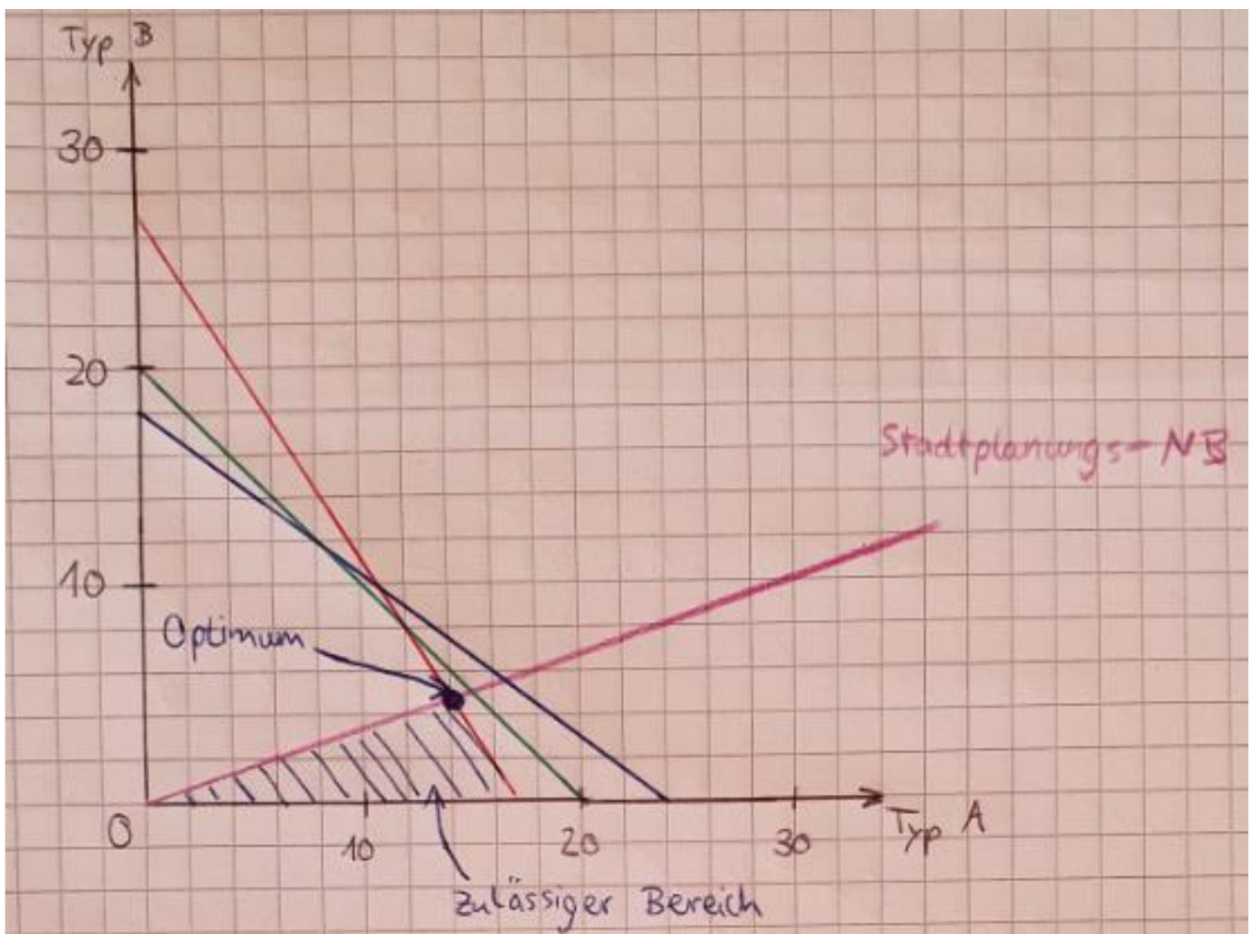 Typ B
30
20
Stadtplanungs-NB
10
Optimum
0
10
20
30
Typ A
Zulässiger Bereich